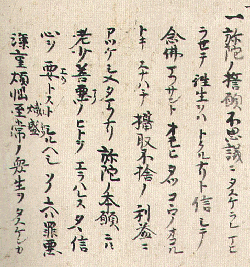 一 弥陀ノ誓願不思議ニタスケラレマヒ
ラセテ往生ヲハトクルナリト信シテ
念佛マフサントオモヒタツコヽロノオコル
トキスナハチ攝取不捨ノ利益ニ
アツケシメタマフナリ弥陀ノ本願ニハ
老少善悪ノヒトヲエラハレスタヽ信
心ヲ要トストシルヘシソノユヘハ罪悪
熾盛
深重煩悩至常ノ衆生ヲタスケンカ